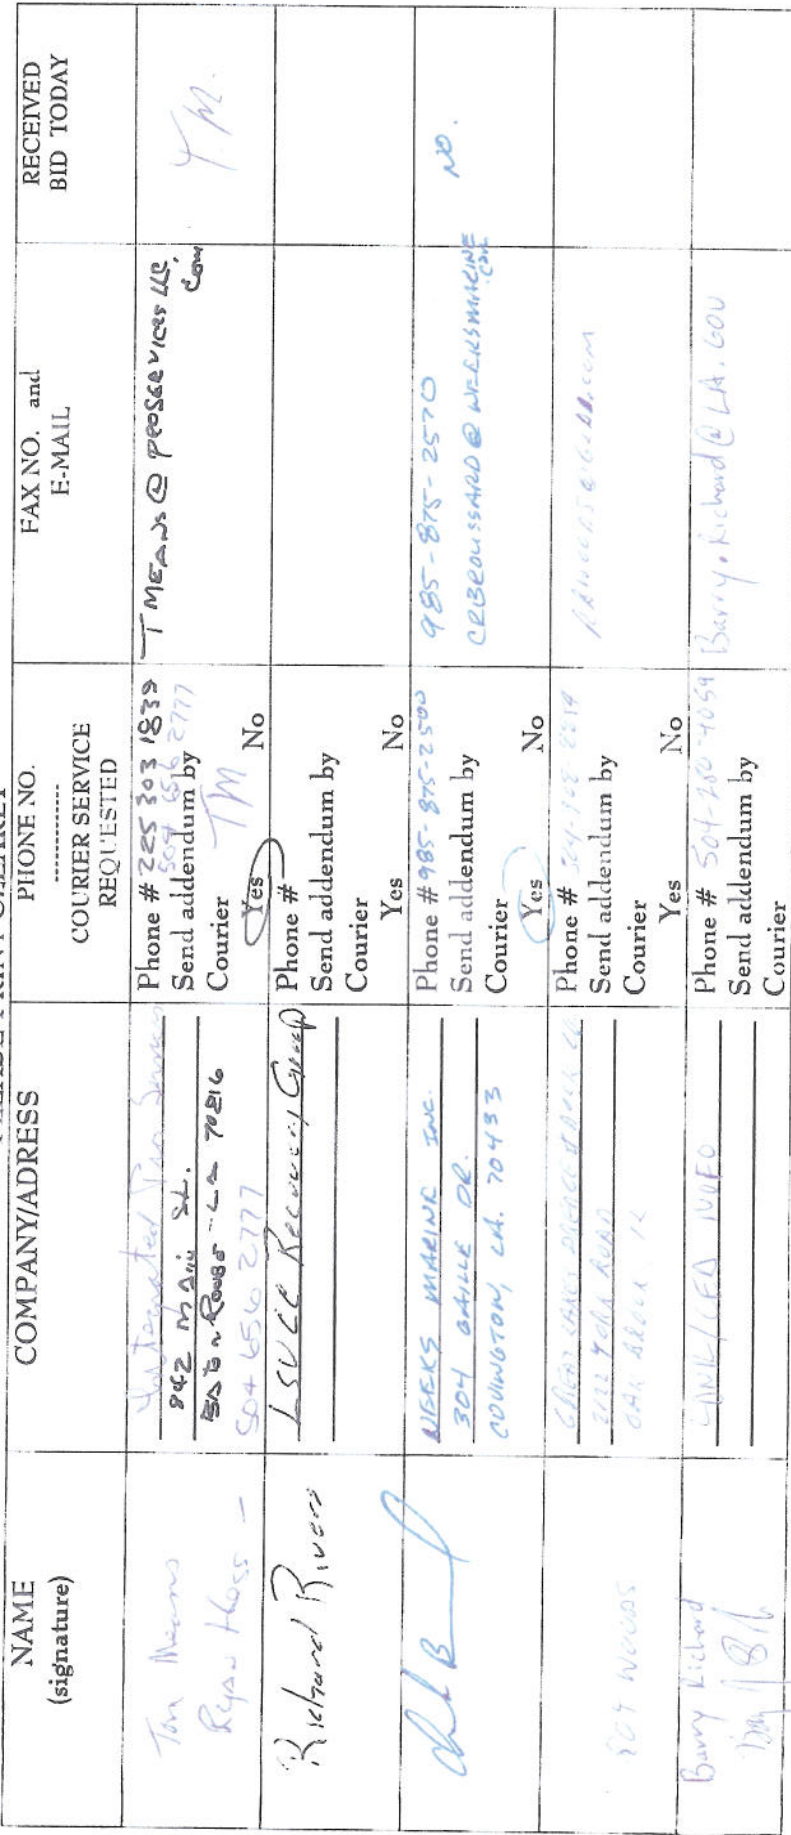 PLEASE PRINT CLEARLY
NAME
(signature)
COMPANY/ADRESS
PHONE NO.
------------
COURIER SERVICE
REQUESTED
FAX NO. and
E-MAIL
RECEIVED
BID TODAY
Tom Means
Ryan
Integrated Pro Services
842 Main St.
Baton Rouge LA 70816
504 656 2777
Phone # 225 303 1839
504 656 2777
Send addendum by
Courier TM
Yes No
TMEANS@PROSERVICES LLC.
com
Y. M.
Richard Rivers
LSUCC Recovery Group
Phone #
Send addendum by
Courier
Yes No
WEEKS MARINE INC.
304 GAILLE DR.
COVINGTON, LA. 70433
Phone # 985-875-2500
Send addendum by
Courier
Yes No
985-875-2570
CRBROUSSARD@WEEKSMARINE
.COM
NO.
WOODS
GREAT LAKES DREDGE & DOCK CO
2122 YORK ROAD
OAK BROOK, IL
Phone #
Send addendum by
Courier
Yes No
Barry Richard
Phone # 504-280-4059
Send addendum by
Courier
Barry.Richard@LA.GOV